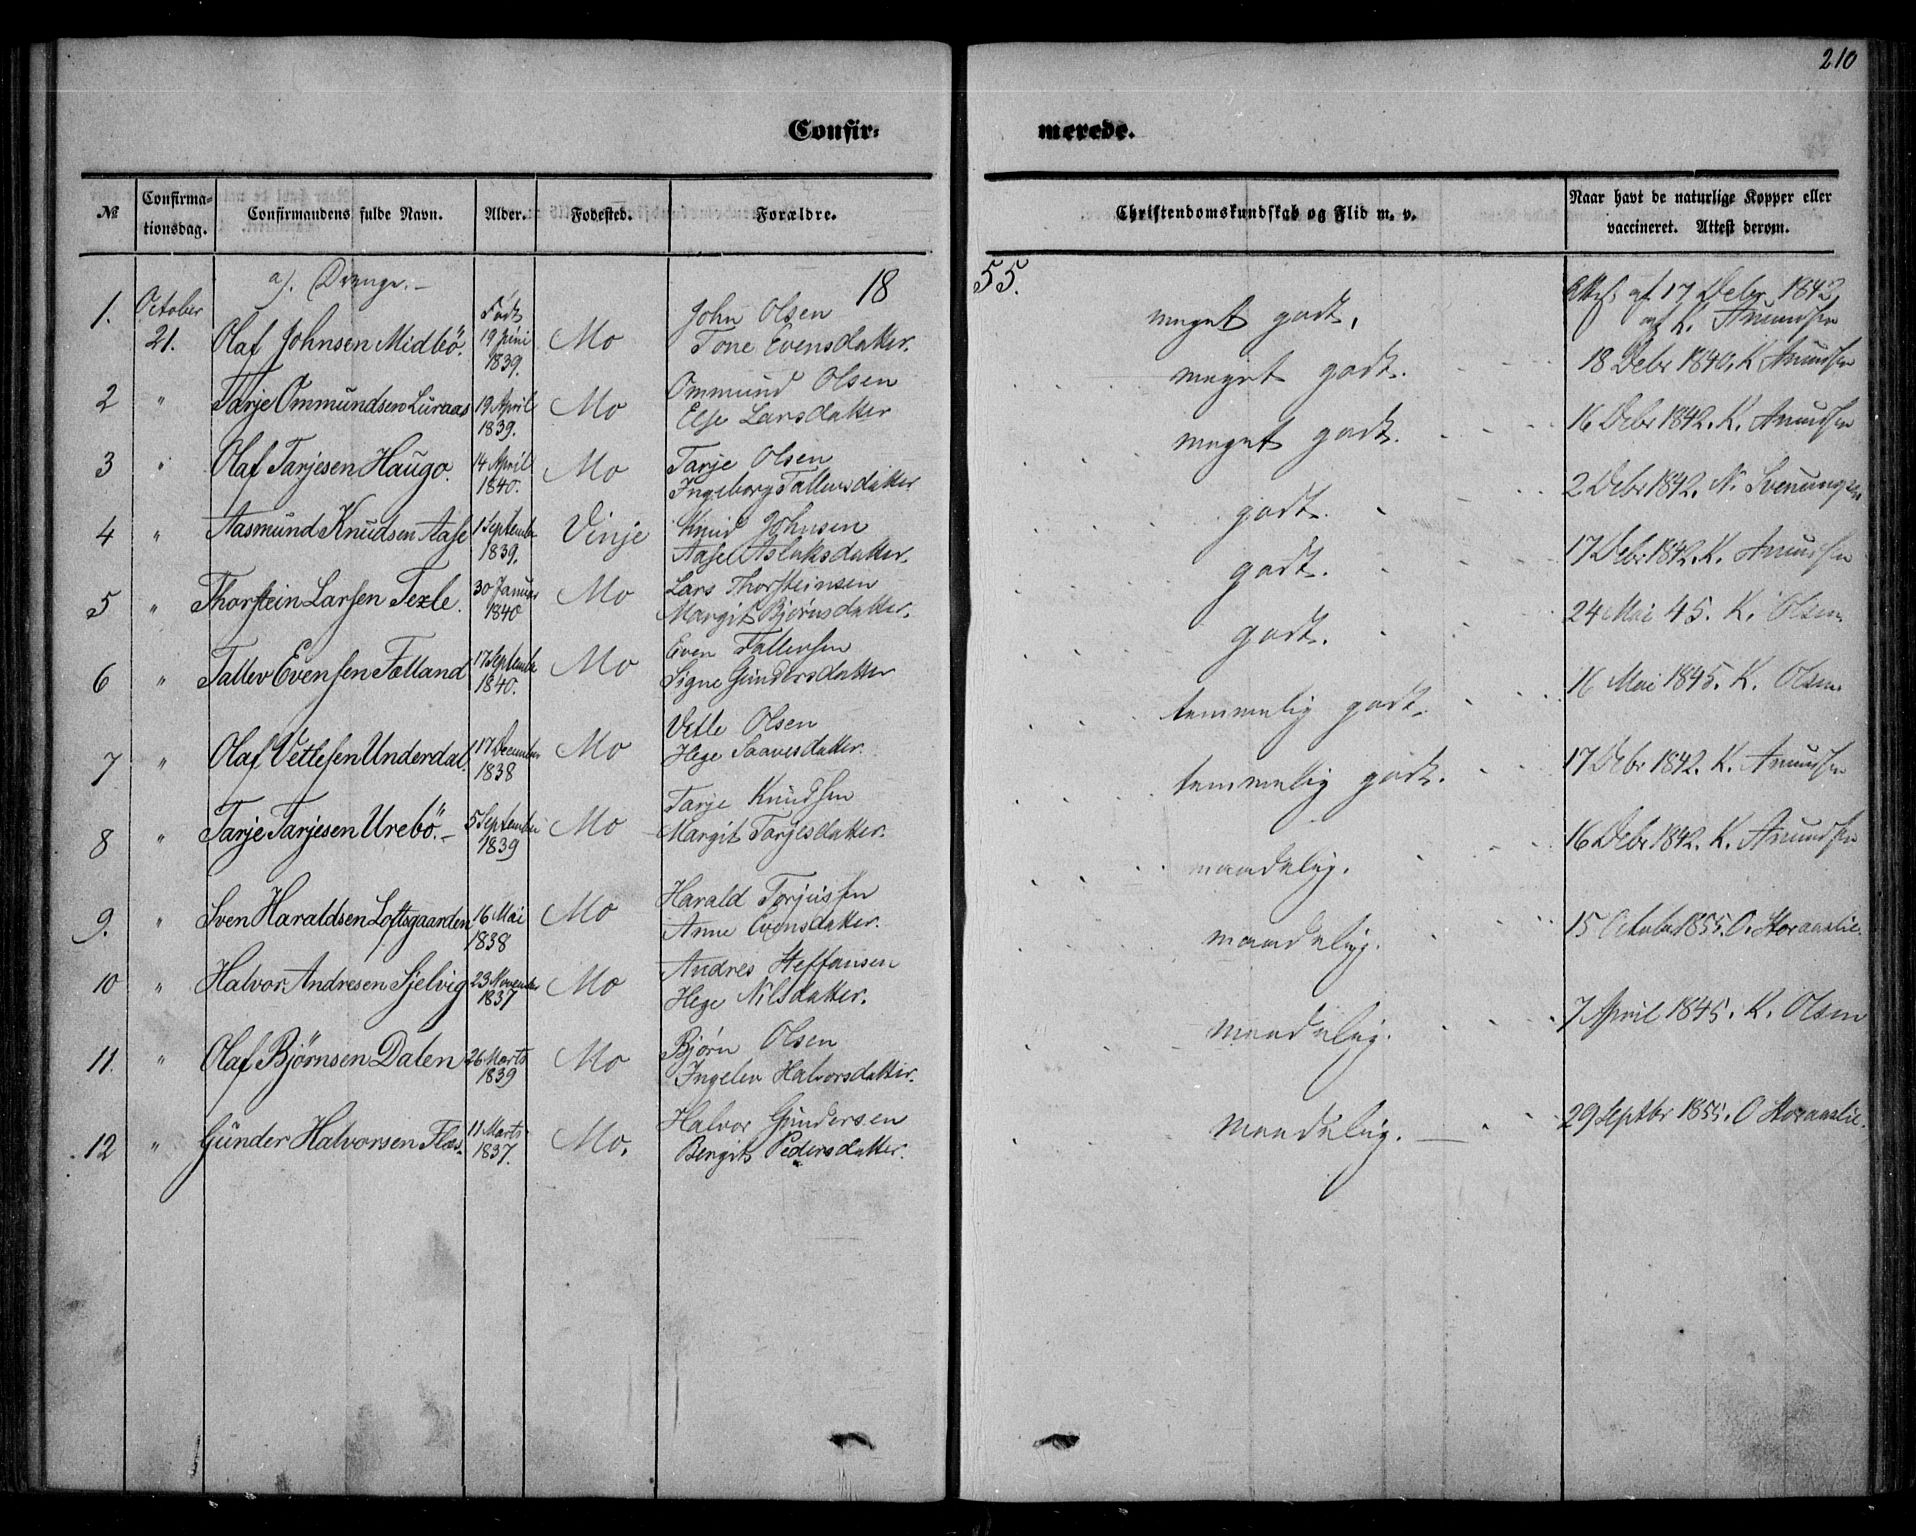 210
Confir-
merede.
№
Confirma-
tionsdag.
Confirmandens fulde Navn.
Alder.
Fødested.
Forældre.
Christendomskundskab og Flid m. v.
Naar havt de naturlige Kopper eller
vaccineret. Attest derom.
1855.
a). Drenge.
1. October 21. Olaf Johnsen Midbö. Født 19 Juni 1839. Mo John Olsen Tone Evensdatter. meget godt, Attest af 17 Debr 1842 af K. Amundsen
2 " Tarje Ommundsen Luraas 19 April 1839. Mo Ommund Olsen Else Larsdatter meget godt. 18 Debr 1840. K Amundsen
3 " Olaf Tarjesen Haugo. 14 April 1840. Mo Tarje Olsen Ingeborg Tallevsdatter meget godt. 16 Debr 1842. K. Amundsen
4 " Aasmund Knudsen Aase 1 September 1839. Vinje Knud Johnsen Aase Aslaksdatter. godt. 2 Debr 1842. N. Svenungsen
5 " Thorstein Larsen Texle. 30 Januar 1840 Mo Lars Thorsteinsen Margit Bjørnsdatter. godt. 17 Debr 1842. K. Amundsen
6 " Tallev Evensen Fælland 17 September 1840. Mo Even Tallevsen Signe Gundersdatter godt. 24 Mai 45. K. Olsen
7 " Olaf Vetlesen Underdal. 17 December 1838 Mo Vetle Olsen Hege Saavesdatter. temmelig godt. 16 Mai 1845. K. Olsen
8 " Tarje Tarjesen Urebö. 5 September 1839 Mo Tarje Knudsen Margit Tarjesdatter. temmelig godt. 17 Debr 1842. K. Amundsen
9. " Sven Haraldsen Loftsgaarden 16 Mai 1838 Mo Harald Torjussen Anne Evensdatter. maadelig. 16 Debr 1842. K. Amundsen
10 " Halvor Andresen Sjelvig 23 November 1837 Mo Andres Steffansen Hege Nilsdatter. maadelig. 15 October 1855. O.
11. " Olaf Bjørnsen Dalen 26 Marts 1839 Mo Bjørn Olsen Ingelev Halvorsdatter. maadelig. 7 April 1845. K. Olsen
12 " Gunder Halvorsen 11 Marts 1837. Mo. Halvor Gundersen Bergit Pedersdatter. maadelig. 29 Septbr 1855. O